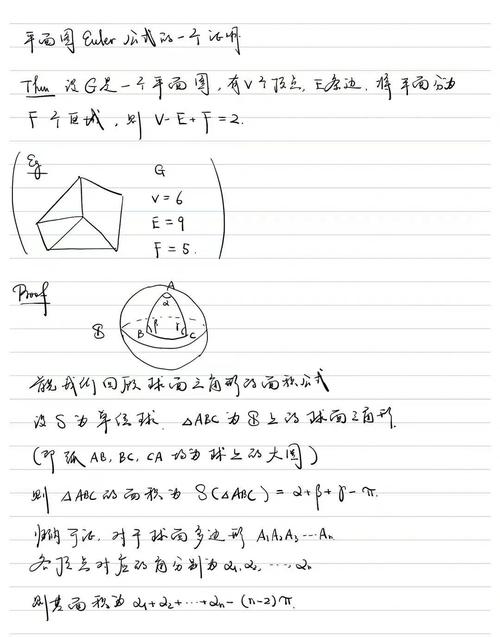 平面图 Euler 公式的一个证明
Thm 设G是一个平面图,有V个顶点,E条边,将平面分为
F个区域,则 V-E+F=2.
Eg
G
V=6
E=9
F=5.
Proof
A
α
B
β
γ
C
首先我们回顾球面三角形的面积公式
设S为单位球,△ABC为S上的球面三角形.
(即弧AB,BC,CA均为球上的大圆)
则△ABC的面积为 S(△ABC)=α+β+γ-π.
归纳可证,对于球面多边形 A₁A₂A₃…Aₙ
各顶点对应的角分别为α₁,α₂,…,αₙ
则其面积为α₁+α₂+…+αₙ-(n-2)π.